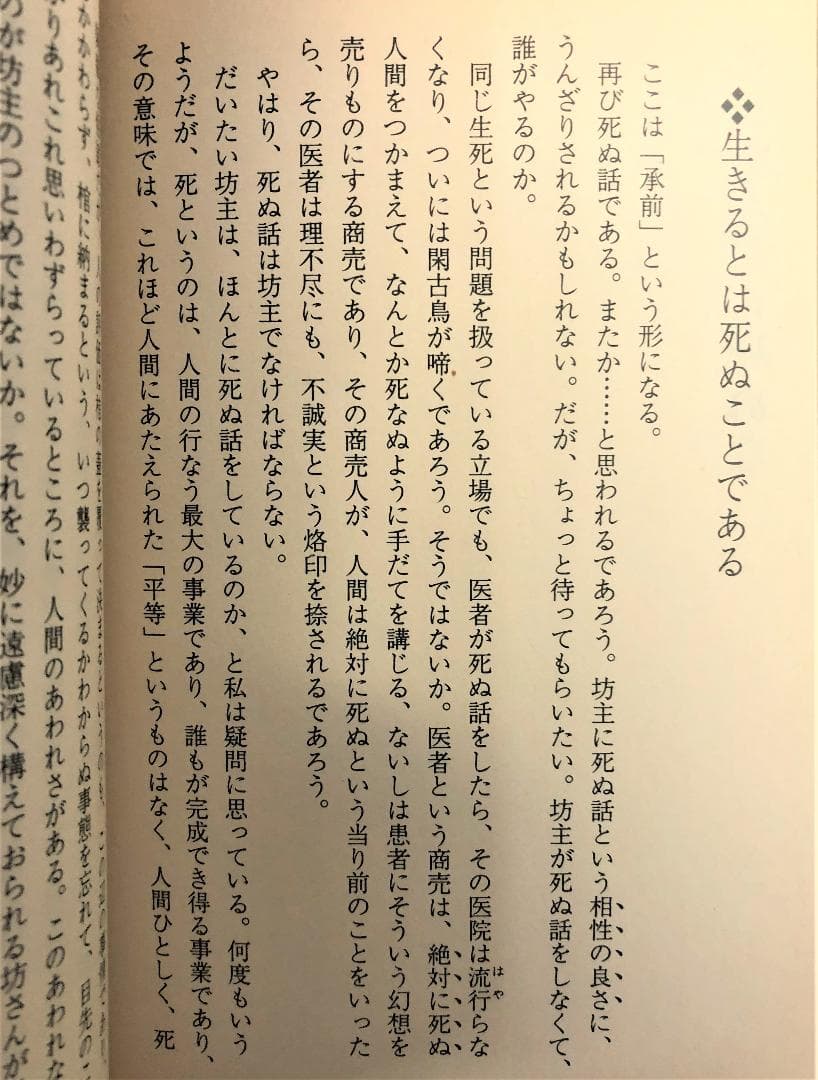 ❖生きるとは死ぬことである
ここは「承前」という形になる。
再び死ぬ話である。またか……と思われるであろう。坊主に死ぬ話という相性の良さに、
うんざりされるかもしれない。だが、ちょっと待ってもらいたい。坊主が死ぬ話をしなくて、
誰がやるのか。
同じ生死という問題を扱っている立場でも、医者が死ぬ話をしたら、その医院は流行らな
くなり、ついには閑古鳥が啼くであろう。そうではないか。医者という商売は、絶対に死ぬ
人間をつかまえて、なんとか死なぬように手だてを講じる、ないしは患者にそういう幻想を
売りものにする商売であり、その商売人が、人間は絶対に死ぬという当り前のことをいった
ら、その医者は理不尽にも、不誠実という烙印を捺されるであろう。
やはり、死ぬ話は坊主でなければならない。
だいたい坊主は、ほんとに死ぬ話をしているのか、と私は疑問に思っている。何度もいう
ようだが、死というのは、人間の行なう最大の事業であり、誰もが完成でき得る事業であり、
その意味では、これほど人間にあたえられた「平等」というものはなく、人間ひとしく、死
かかわらず、棺に納まるという、いつ襲ってくるかわからぬ事態を忘れて、目先のこ
りあれこれ思いわずらっているところに、人間のあわれさがある。このあわれな
のが坊主のつとめではないか。それを、妙に遠慮深く構えておられる坊さんが